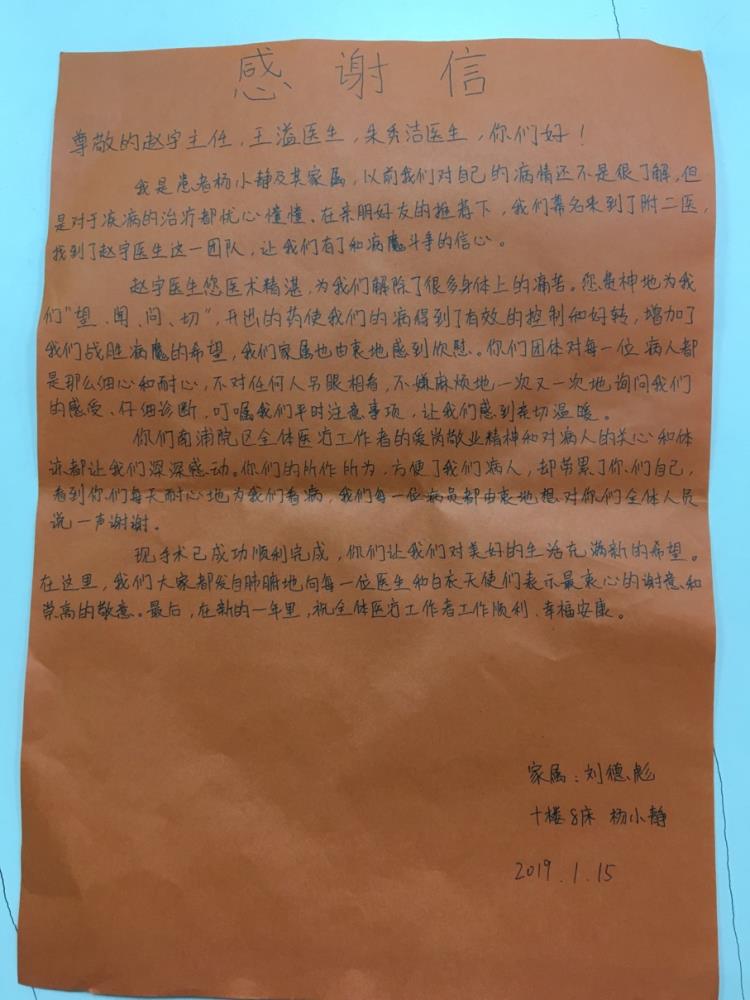 感谢信
尊敬的赵宇主任，王溢医生，朱秀洁医生，你们好！
我是患者杨小静及其家属，以前我们对自己的病情还不是很了解，但
是对于疾病的治疗都忧心憧憧、在亲朋好友的推荐下，我们慕名来到了附二医，
找到了赵宇医生这一团队，让我们有了和病魔斗争的信心。
赵宇医生您医术精湛，为我们解除了很多身体上的痛苦。您费神地为我
们“望、闻、问、切”，开出的药使我们的病得到了有效的控制和好转，增加了
我们战胜病魔的希望，我们家属也由衷地感到欣慰。你们团体对每一位病人都
是那么细心和耐心，不对任何人另眼相看，不嫌麻烦地一次又一次地询问我们
的感受、仔细诊断，叮嘱我们平时注意事项，让我们感到亲切温暖。
你们南浦院区全体医疗工作者的爱岗敬业精神和对病人的关心和体
谅都让我们深深感动。你们的所作所为，方便了我们病人，却带累了你们自己，
看到你们每天耐心地为我们看病，我们每一位病员都由衷地想对你们全体人员
说一声谢谢。
现手术已成功顺利完成，你们让我们对美好的生活充满新的希望。
在这里，我们大家都发自肺腑地向每一位医生和白衣天使们表示最衷心的谢意和
崇高的敬意。最后，在新的一年里，祝全体医疗工作者工作顺利、幸福安康。
家属：刘德彪
十楼8床 杨小静
2019.1.15